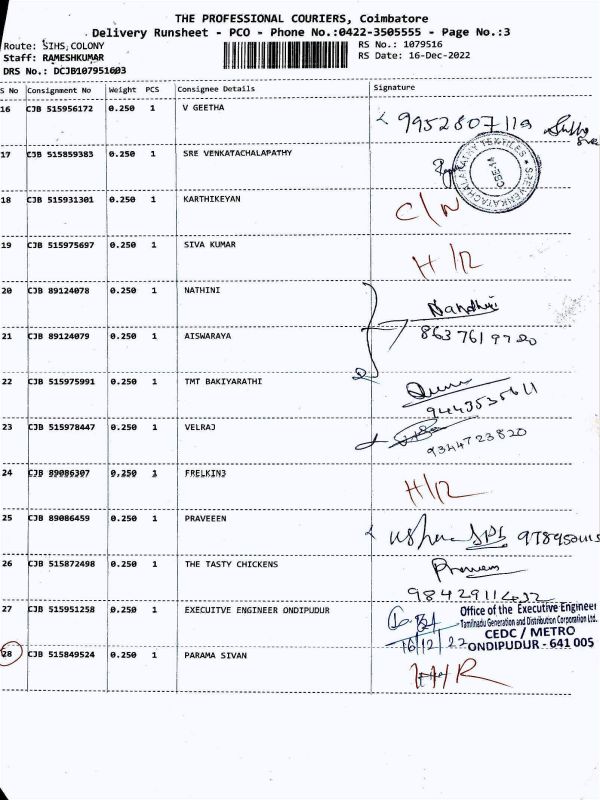 THE PROFESSIONAL COURIERS, Coimbatore
Delivery Runsheet - PCO - Phone No.:0422-3505555 - Page No.:3
Route: SIHS COLONY RS No.: 1079516
Staff: RAMESHKUMAR RS Date: 16-Dec-2022
DRS No.: DCJB107951603
S No Consignment No Weight PCS Consignee Details Signature
16 CJB 515956172 0.250 1 V GEETHA
17 CJB 515859383 0.250 1 SRE VENKATACHALAPATHY
CBE-14
18 CJB 515931301 0.250 1 KARTHIKEYAN C/N
19 CJB 515975697 0.250 1 SIVA KUMAR H/R
20 CJB 89124078 0.250 1 NATHINI Nandhini
21 CJB 89124079 0.250 1 AISWARAYA
22 CJB 515975991 0.250 1 TMT BAKIYARATHI
9443535611
23 CJB 515978447 0.250 1 VELRAJ
9344723820
24 CJB 89086307 0.250 1 FRELKIN3 H/R
25 CJB 89086459 0.250 1 PRAVEEEN
26 CJB 515872498 0.250 1 THE TASTY CHICKENS Praveen
27 CJB 515951258 0.250 1 EXECUITVE ENGINEER ONDIPUDUR
16/12/22
Office of the Executive Engineer
Tamilnadu Generation and Distribution Corporation Ltd.
CEDC / METRO
ONDIPUDUR - 641 005
28 CJB 515849524 0.250 1 PARAMA SIVAN H/R